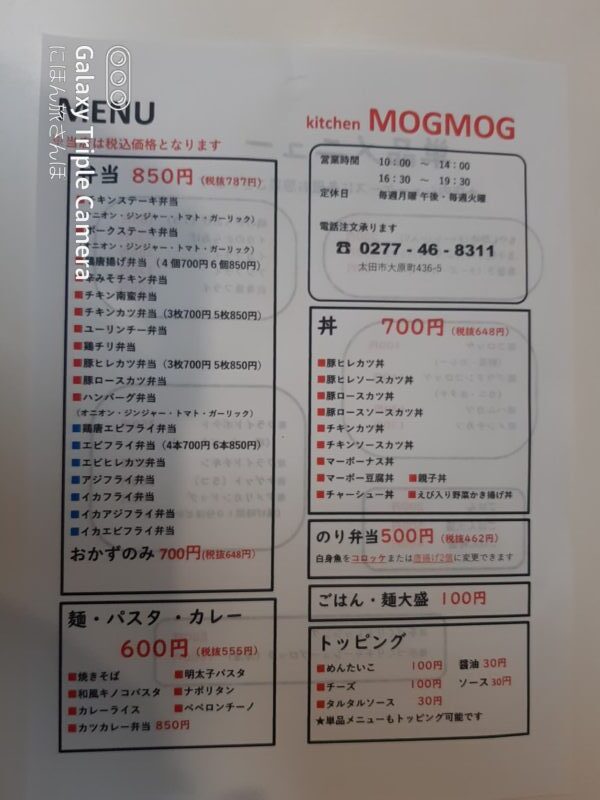 MENU
kitchen MOGMOG
Galaxy Triple Camera
にほん旅さんぽ
は税込価格となります
弁当 850円 (税抜787円)
■チキンステーキ弁当
(オニオン・ジンジャー・トマト・ガーリック)
■ポークステーキ弁当
(オニオン・ジンジャー・トマト・ガーリック)
■鶏唐揚げ弁当 (4個700円 6個850円)
みそチキン弁当
■チキン南蛮弁当
■チキンカツ弁当 (3枚700円 5枚850円)
■ユーリンチー弁当
■鶏チリ弁当
■豚ヒレカツ弁当 (3枚700円 5枚850円)
■豚ロースカツ弁当
■ハンバーグ弁当
(オニオン・ジンジャー・トマト・ガーリック)
■鶏唐エビフライ弁当
■エビフライ弁当 (4本700円 6本850円)
■エビヒレカツ弁当
■アジフライ弁当
■イカフライ弁当
■イカアジフライ弁当
■イカエビフライ弁当
おかずのみ 700円(税抜648円)
麺・パスタ・カレー
600円 (税抜555円)
■焼きそば ■明太子パスタ
■和風キノコパスタ ■ナポリタン
■カレーライス ■ペペロンチーノ
■カツカレー弁当 850円
営業時間 10:00 ～ 14:00
16:30 ～ 19:30
定休日 毎週月曜 午後・毎週火曜
電話注文承ります
☎ 0277-46-8311
太田市大原町436-5
丼 700円 (税抜648円)
■豚ヒレカツ丼
■豚ヒレソースカツ丼
■豚ロースカツ丼
■豚ロースソースカツ丼
■チキンカツ丼
■チキンソースカツ丼
■マーボーナス丼
■マーボー豆腐丼 ■親子丼
■チャーシュー丼 ■えび入り野菜かき揚げ丼
のり弁当500円 (税抜462円)
白身魚をコロッケまたは唐揚げ2個に変更できます
ごはん・麺大盛 100円
トッピング
■めんたいこ 100円 醤油 30円
■チーズ 100円 ソース 30円
■タルタルソース 30円
★単品メニューもトッピング可能です